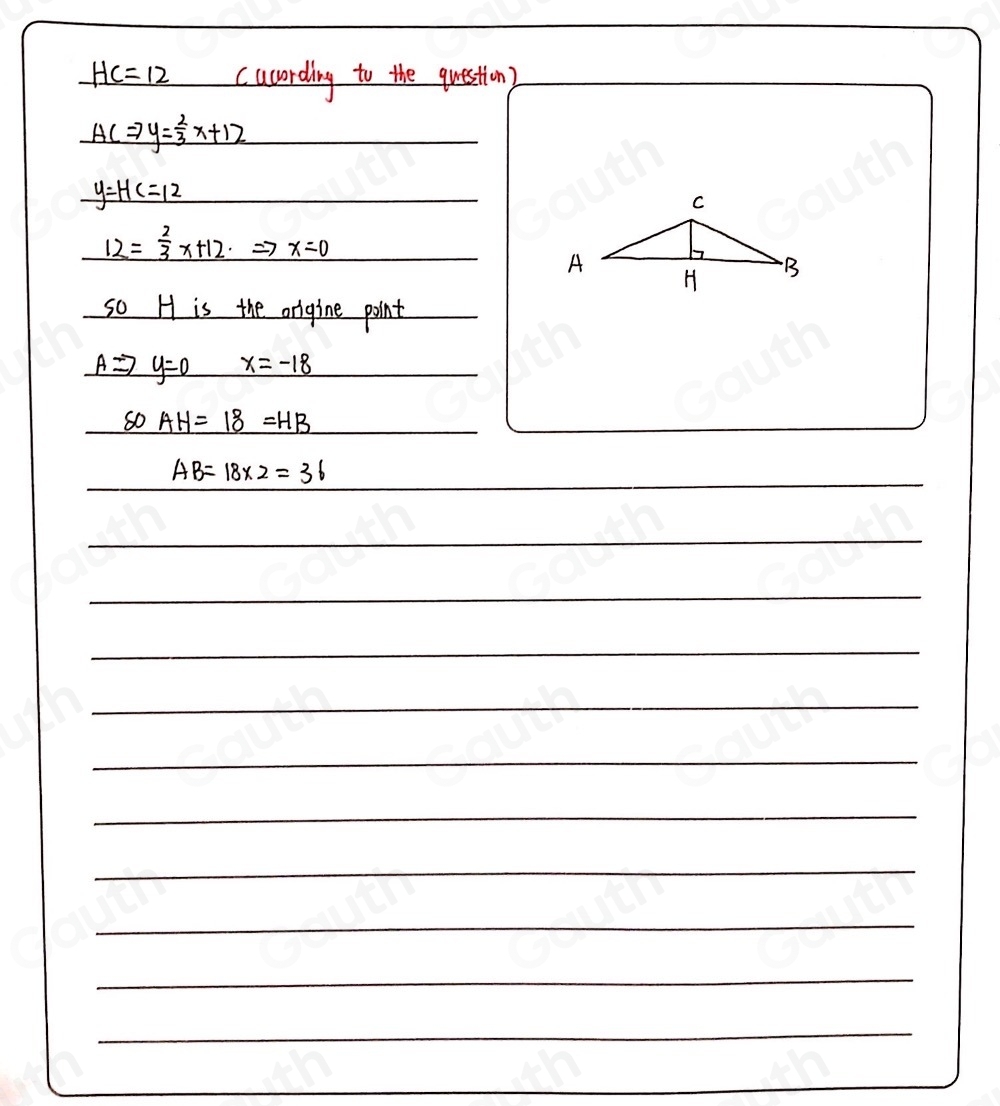 HC=12 (according to the question)
AC⇒y=2/3x+12
y=HC=12
12=2/3x+12. ⇒ x=0
so H is the origine point
A⇒ y=0 x=-18
so AH= 18 =HB
AB= 18×2 = 36
C
A
H
B
Gauth